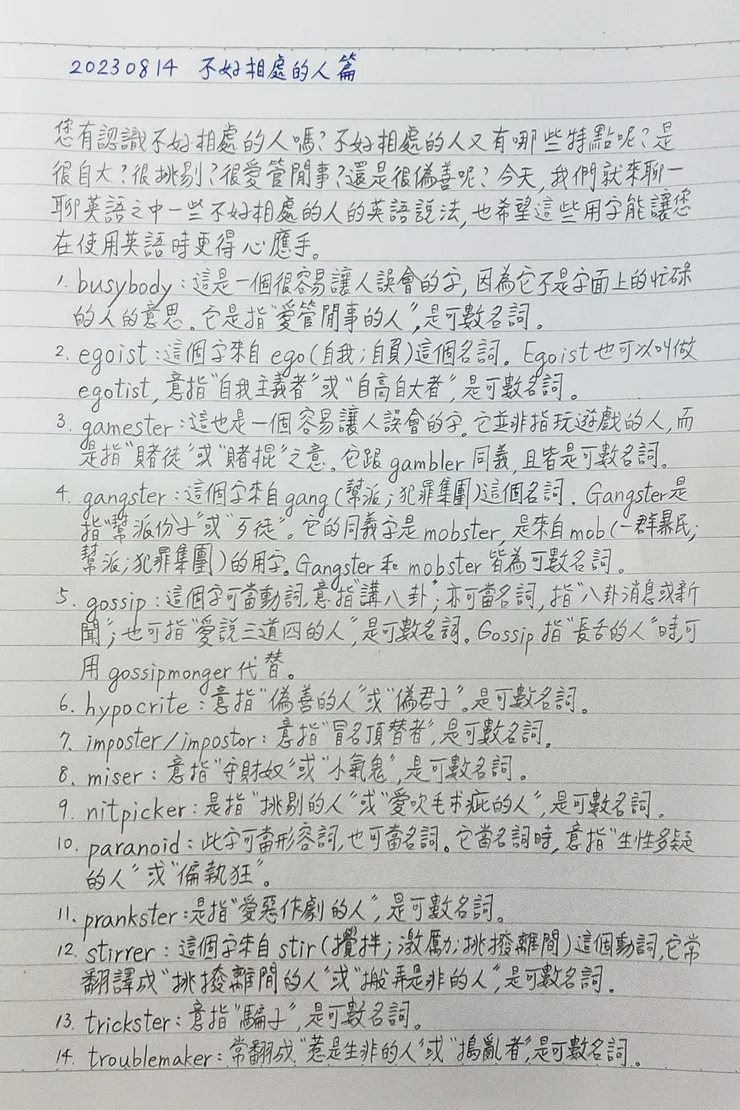 20230814 不好相處的人篇
您有認識不好相處的人嗎?不好相處的人又有哪些特點呢?是
很自大?很挑剔?很愛管閒事?還是很偽善呢?今天,我們就來聊一
聊英語之中一些不好相處的人的英語說法,也希望這些用字能讓您
在使用英語時更得心應手。
1. busybody:這是一個很容易讓人誤會的字,因為它不是字面上的忙碌
的人的意思。它是指“愛管閒事的人”,是可數名詞。
2. egoist:這個字來自 ego(自我;自負)這個名詞。Egoist 也可以叫做
egotist,意指“自我主義者”或“自高自大者”,是可數名詞。
3. gamester:這也是一個容易讓人誤會的字。它並非指玩遊戲的人,而
是指“賭徒”或“賭棍”之意。它跟 gambler 同義,且皆是可數名詞。
4. gangster:這個字來自gang(幫派;犯罪集團)這個名詞。Gangster是
指“幫派份子”或“歹徒”。它的同義字是mobster,是來自mob(一群暴民;
幫派;犯罪集團)的用字。Gangster 和 mobster 皆為可數名詞。
5. gossip:這個字可當動詞,意指“講八卦”;亦可當名詞,指“八卦消息或新
聞”;也可指“愛說三道四的人”,是可數名詞。Gossip 指“長舌的人”時,可
用 gossipmonger 代替。
6. hypocrite:意指“偽善的人”或“偽君子”。是可數名詞。
7. imposter/impostor:意指“冒名頂替者”,是可數名詞。
8. miser:意指“守財奴”或“小氣鬼”,是可數名詞。
9. nitpicker:是指“挑剔的人”或“愛吹毛求疵的人”,是可數名詞。
10. paranoid:此字可當形容詞,也可當名詞。它當名詞時,意指“生性多疑
的人”或“偏執狂”。
11. prankster:是指“愛惡作劇的人”,是可數名詞。
12. stirrer:這個字來自 stir(攪拌;激勵;挑撥離間)這個動詞,它常
翻譯成“挑撥離間的人”或“搬弄是非的人”,是可數名詞。
13. trickster:意指“騙子”,是可數名詞。
14. troublemaker:常翻成“惹是生非的人”或“搗亂者”,是可數名詞。